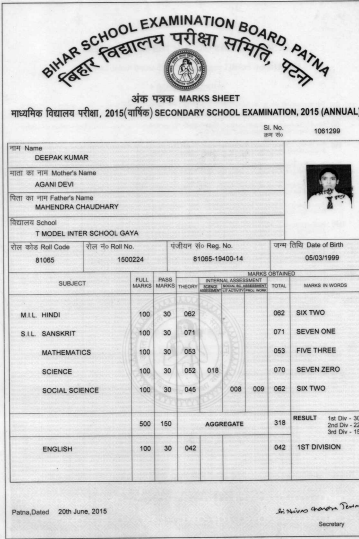 BIHAR SCHOOL EXAMINATION BOARD, PATNA
बिहार विद्यालय परीक्षा समिति, पटना
अंक पत्रक MARKS SHEET
माध्यमिक विद्यालय परीक्षा, 2015(वार्षिक) SECONDARY SCHOOL EXAMINATION, 2015 (ANNUAL)
Sl. No. 1061299
क्रम सं०
नाम Name
DEEPAK KUMAR
माता का नाम Mother's Name
AGANI DEVI
पिता का नाम Father's Name
MAHENDRA CHAUDHARY
विद्यालय School
T MODEL INTER SCHOOL GAYA
रोल कोड Roll Code रोल नं० Roll No. पंजीयन सं० Reg. No. जन्म तिथि Date of Birth
81065 1500224 81065-19400-14 05/03/1999
MARKS OBTAINED
SUBJECT FULL MARKS PASS MARKS THEORY INTERNAL ASSESSMENT TOTAL MARKS IN WORDS
M.I.L. HINDI 100 30 062 062 SIX TWO
S.I.L. SANSKRIT 100 30 071 071 SEVEN ONE
MATHEMATICS 100 30 053 053 FIVE THREE
SCIENCE 100 30 052 018 070 SEVEN ZERO
SOCIAL SCIENCE 100 30 045 008 009 062 SIX TWO
500 150 AGGREGATE 318 RESULT 1st Div - 30
2nd Div - 22
3rd Div - 15
ENGLISH 100 30 042 042 1ST DIVISION
Patna,Dated 20th June, 2015
Secretary